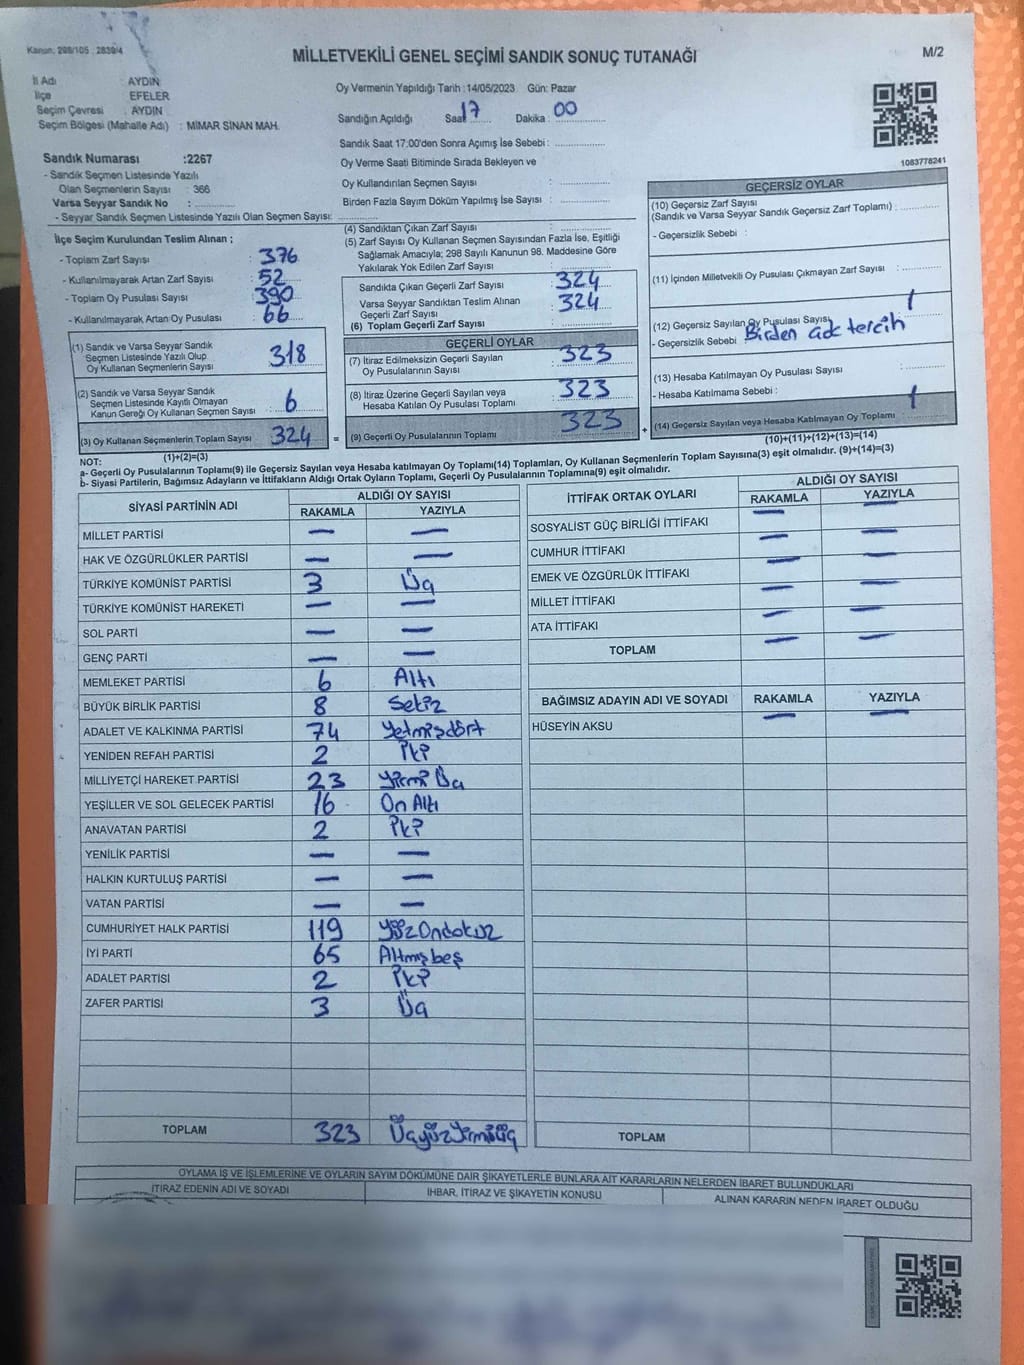 Kanun: 298/105 , 2839/4
MİLLETVEKİLİ GENEL SEÇİMİ SANDIK SONUÇ TUTANAĞI
M/2
İl Adı : AYDIN
İlçe : EFELER
Seçim Çevresi : AYDIN
Seçim Bölgesi (Mahalle Adı) : MİMAR SİNAN MAH.
Oy Vermenin Yapıldığı Tarih :14/05/2023 Gün: Pazar
Sandığın Açıldığı Saat 17 Dakika : 00
Sandık Saat 17:00'den Sonra Açımış İse Sebebi :
Oy Verme Saati Bitiminde Sırada Bekleyen ve
Oy Kullandırılan Seçmen Sayısı :
Birden Fazla Sayım Döküm Yapılmış İse Sayısı :
1083778241
Sandık Numarası :2267
- Sandık Seçmen Listesinde Yazılı
Olan Seçmenlerin Sayısı : 366
Varsa Seyyar Sandık No :
- Seyyar Sandık Seçmen Listesinde Yazılı Olan Seçmen Sayısı:
İlçe Seçim Kurulundan Teslim Alınan ;
- Toplam Zarf Sayısı : 376
- Kullanılmayarak Artan Zarf Sayısı : 52
- Toplam Oy Pusulası Sayısı : 390
- Kullanılmayarak Artan Oy Pusulası : 66
(1) Sandık ve Varsa Seyyar Sandık
Seçmen Listesinde Yazılı Olup
Oy Kullanan Seçmenlerin Sayısı : 318
(2) Sandık ve Varsa Seyyar Sandık
Seçmen Listesinde Kayıtlı Olmayan
Kanun Gereği Oy Kullanan Seçmen Sayısı : 6
(3) Oy Kullanan Seçmenlerin Toplam Sayısı 324
(1)+(2)=(3)
=
(4) Sandıktan Çıkan Zarf Sayısı :
(5) Zarf Sayısı Oy Kullanan Seçmen Sayısından Fazla İse, Eşitliği
Sağlamak Amacıyla; 298 Sayılı Kanunun 98. Maddesine Göre
Yakılarak Yok Edilen Zarf Sayısı :
Sandıkta Çıkan Geçerli Zarf Sayısı : 324
Varsa Seyyar Sandıktan Teslim Alınan
Geçerli Zarf Sayısı : 324
(6) Toplam Geçerli Zarf Sayısı :
GEÇERLİ OYLAR
(7) İtiraz Edilmeksizin Geçerli Sayılan
Oy Pusulalarının Sayısı : 323
(8) İtiraz Üzerine Geçerli Sayılan veya
Hesaba Katılan Oy Pusulası Toplamı : 323
(9) Geçerli Oy Pusulalarının Toplamı : 323
+
GEÇERSİZ OYLAR
(10) Geçersiz Zarf Sayısı
(Sandık ve Varsa Seyyar Sandık Geçersiz Zarf Toplamı) :
- Geçersizlik Sebebi :
(11) İçinden Milletvekili Oy Pusulası Çıkmayan Zarf Sayısı :
(12) Geçersiz Sayılan Oy Pusulası Sayısı 1
- Geçersizlik Sebebi Birden çok tercih
(13) Hesaba Katılmayan Oy Pusulası Sayısı :
- Hesaba Katılmama Sebebi :
(14) Geçersiz Sayılan veya Hesaba Katılmayan Oy Toplamı 1
(10)+(11)+(12)+(13)=(14)
NOT:
a- Geçerli Oy Pusulalarının Toplamı(9) ile Geçersiz Sayılan veya Hesaba katılmayan Oy Toplamı(14) Toplamları, Oy Kullanan Seçmenlerin Toplam Sayısına(3) eşit olmalıdır. (9)+(14)=(3)
b- Siyasi Partilerin, Bağımsız Adayların ve İttifakların Aldığı Ortak Oyların Toplamı, Geçerli Oy Pusulalarının Toplamına(9) eşit olmalıdır.
SİYASİ PARTİNİN ADI ALDIĞI OY SAYISI
RAKAMLA YAZIYLA
MİLLET PARTİSİ — —
HAK VE ÖZGÜRLÜKLER PARTİSİ — —
TÜRKİYE KOMÜNİST PARTİSİ 3 Üç
TÜRKİYE KOMÜNİST HAREKETİ — —
SOL PARTİ — —
GENÇ PARTİ — —
MEMLEKET PARTİSİ 6 Altı
BÜYÜK BİRLİK PARTİSİ 8 Sekiz
ADALET VE KALKINMA PARTİSİ 74 Yetmişdört
YENİDEN REFAH PARTİSİ 2 İki
MİLLİYETÇİ HAREKET PARTİSİ 23 Yirmi Üç
YEŞİLLER VE SOL GELECEK PARTİSİ 16 On Altı
ANAVATAN PARTİSİ 2 İki
YENİLİK PARTİSİ — —
HALKIN KURTULUŞ PARTİSİ — —
VATAN PARTİSİ — —
CUMHURİYET HALK PARTİSİ 119 YüzOndokuz
İYİ PARTİ 65 Altmışbeş
ADALET PARTİSİ 2 İki
ZAFER PARTİSİ 3 Üç
TOPLAM 323 ÜçyüzYirmiüç
İTTİFAK ORTAK OYLARI ALDIĞI OY SAYISI
RAKAMLA YAZIYLA
SOSYALİST GÜÇ BİRLİĞİ İTTİFAKI — —
CUMHUR İTTİFAKI — —
EMEK VE ÖZGÜRLÜK İTTİFAKI — —
MİLLET İTTİFAKI — —
ATA İTTİFAKI — —
TOPLAM — —
BAĞIMSIZ ADAYIN ADI VE SOYADI RAKAMLA YAZIYLA
HÜSEYİN AKSU — —
TOPLAM
OYLAMA İŞ VE İŞLEMLERİNE VE OYLARIN SAYIM DÖKÜMÜNE DAİR ŞİKAYETLERLE BUNLARA AİT KARARLARIN NELERDEN İBARET BULUNDUKLARI
İTİRAZ EDENİN ADI VE SOYADI İHBAR, İTİRAZ VE ŞİKAYETİN KONUSU ALINAN KARARIN NEDEN İBARET OLDUĞU